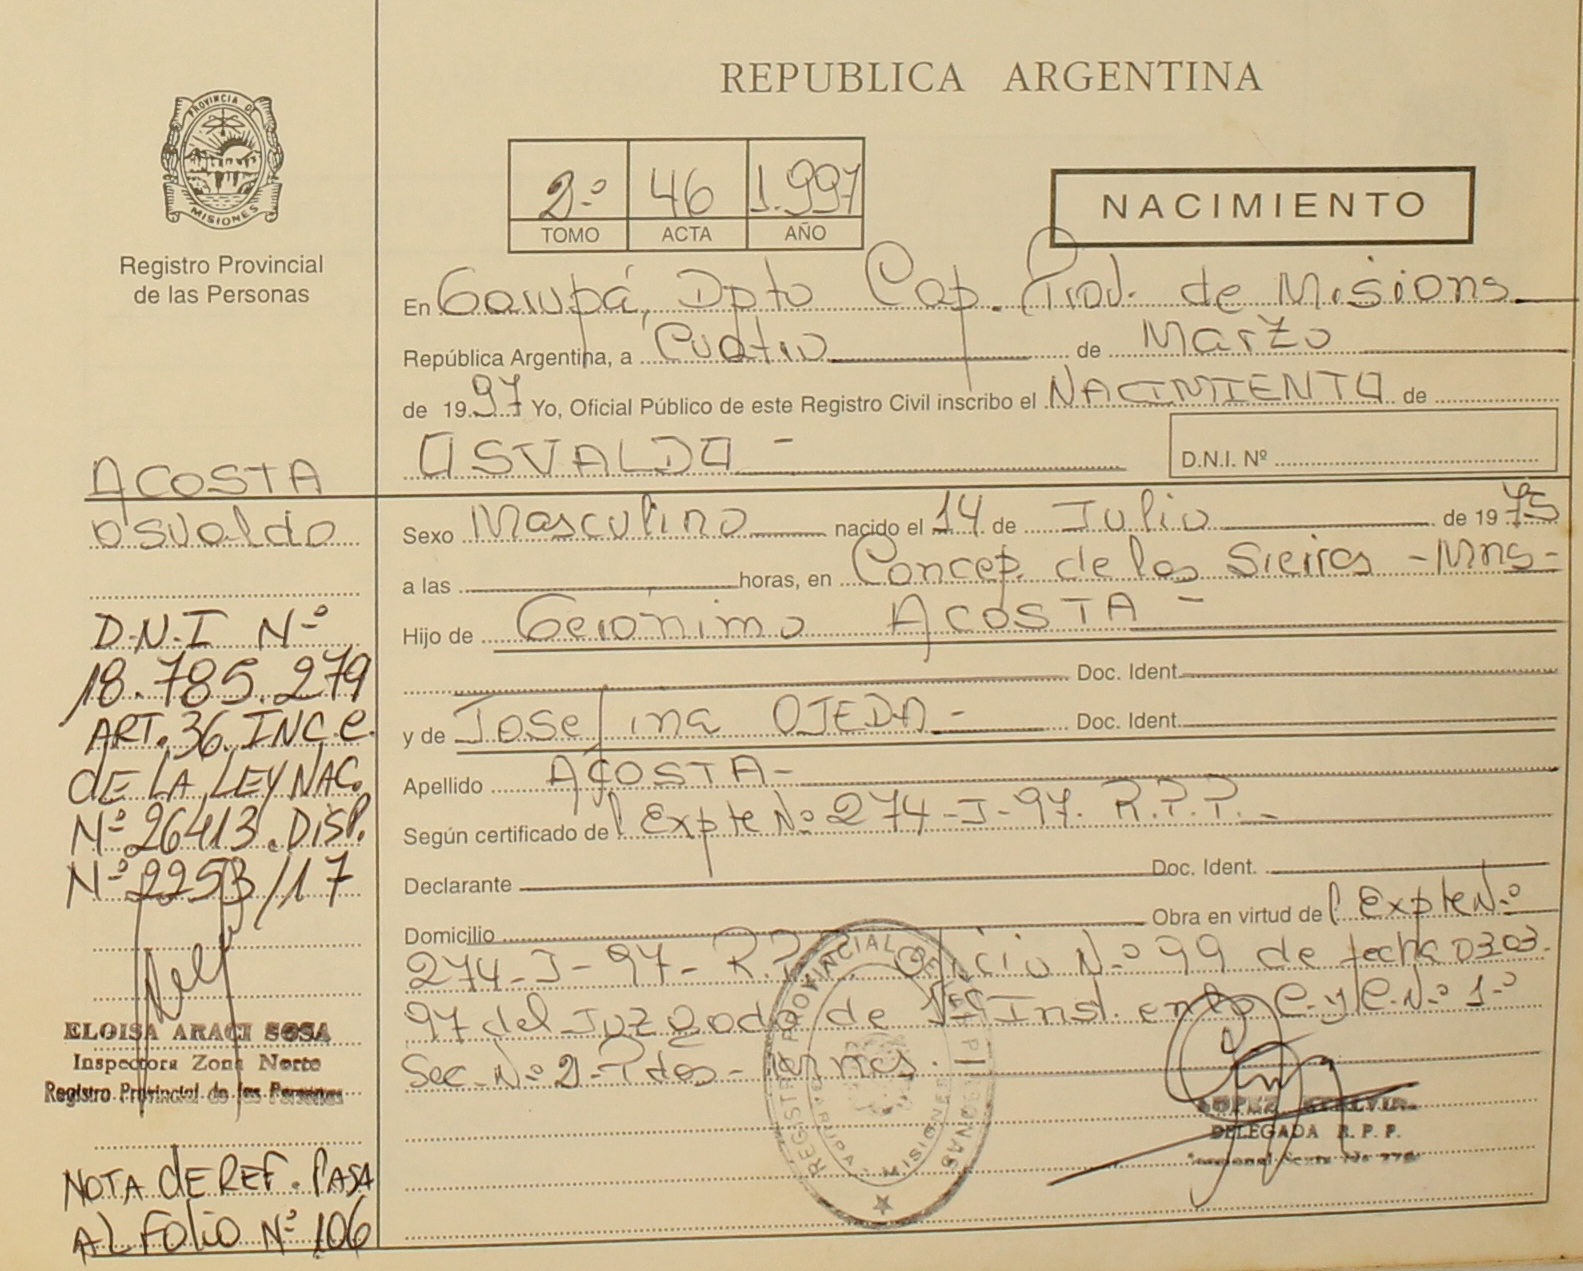 REPUBLICA ARGENTINA
PROVINCIA DE
MISIONES
Registro Provincial
de las Personas
2º 46 1.997
TOMO ACTA AÑO
NACIMIENTO
En Garupá, Dpto Cap. Prov. de Misions
República Argentina, a Cuatro de Marzo
de 1997 Yo, Oficial Público de este Registro Civil inscribo el NACIMIENTO de
OSVALDO -
D.N.I. Nº
ACOSTA
Osvaldo
Sexo Masculino nacido el 14 de Julio de 1975
a las horas, en Concep. de la Sierra - Mns -
Hijo de Gerónimo ACOSTA -
Doc. Ident.
y de Josefina OJEDA - Doc. Ident.
Apellido ACOSTA -
Según certificado de Expte Nº 274-J-97. R.P.P. -
Declarante Doc. Ident.
Domicilio Obra en virtud de Expte Nº
274-J-97- R.P.P. Oficio Nº 99 de fecha 03.03.
97 del Juzgado de 1era Inst. en lo C. y C. Nº 1º
Sec. Nº 2 - Pdas -
D.N.I Nº
18.785.279
ART. 36. INC C.
DE LA LEY NAC.
Nº 26413. DISP.
Nº 2253/17
ELOISA ARACI SOSA
Inspectora Zona Norte
Registro Provincial de las Personas
NOTA de REF. PASA
AL FOLIO Nº 106
REGISTRO PROVINCIAL DE LAS PERSONAS
MISIONES
LOPEZ
DELEGADA R. P. P.